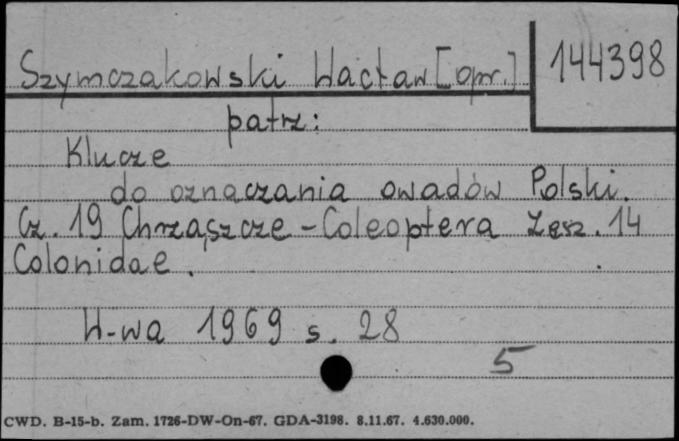 Szymczakowski Wacław [opr.]
144398
patrz:
Klucze
do oznaczania owadów Polski.
Cz. 19 Chrząszcze - Coleoptera Zesz. 14
Colonidae.
W-wa 1969 s. 28
5
CWD. B-15-b. Zam. 1726-DW-On-67. GDA-3198. 8.11.67. 4.630.000.